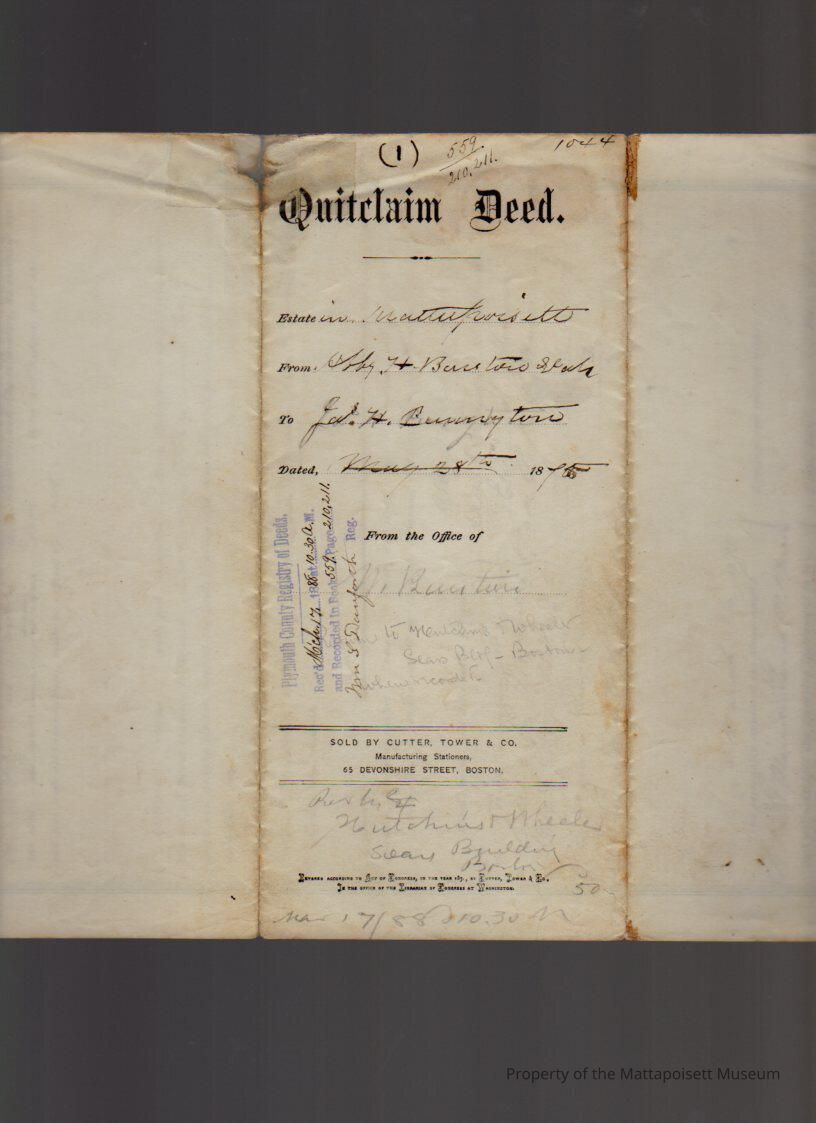 (1)
559
210,211.
1044
Quitclaim Deed.
Estate in Mattapoisett
From Abby H. Burston
To Jas. H. Bennington
Dated, May 28th 1875
From the Office of
Plymouth County Registry of Deeds.
Rec'd Mch. 17, 1888 at 10.30 A.M.
and Recorded in Book 559 Page 210,211.
Wm S Danforth Reg.
to Hutchins & Wheeler
Sears Bldg - Boston
when recorded
SOLD BY CUTTER, TOWER & CO.
Manufacturing Stationers,
65 DEVONSHIRE STREET, BOSTON.
Hutchins & Wheeler
Sears Building
Boston
Entered according to Act of Congress, in the year 187, by Cutter, Tower & Co.,
In the office of the Librarian of Congress at Washington.
50
Mar 17/88 10.30
Property of the Mattapoisett Museum